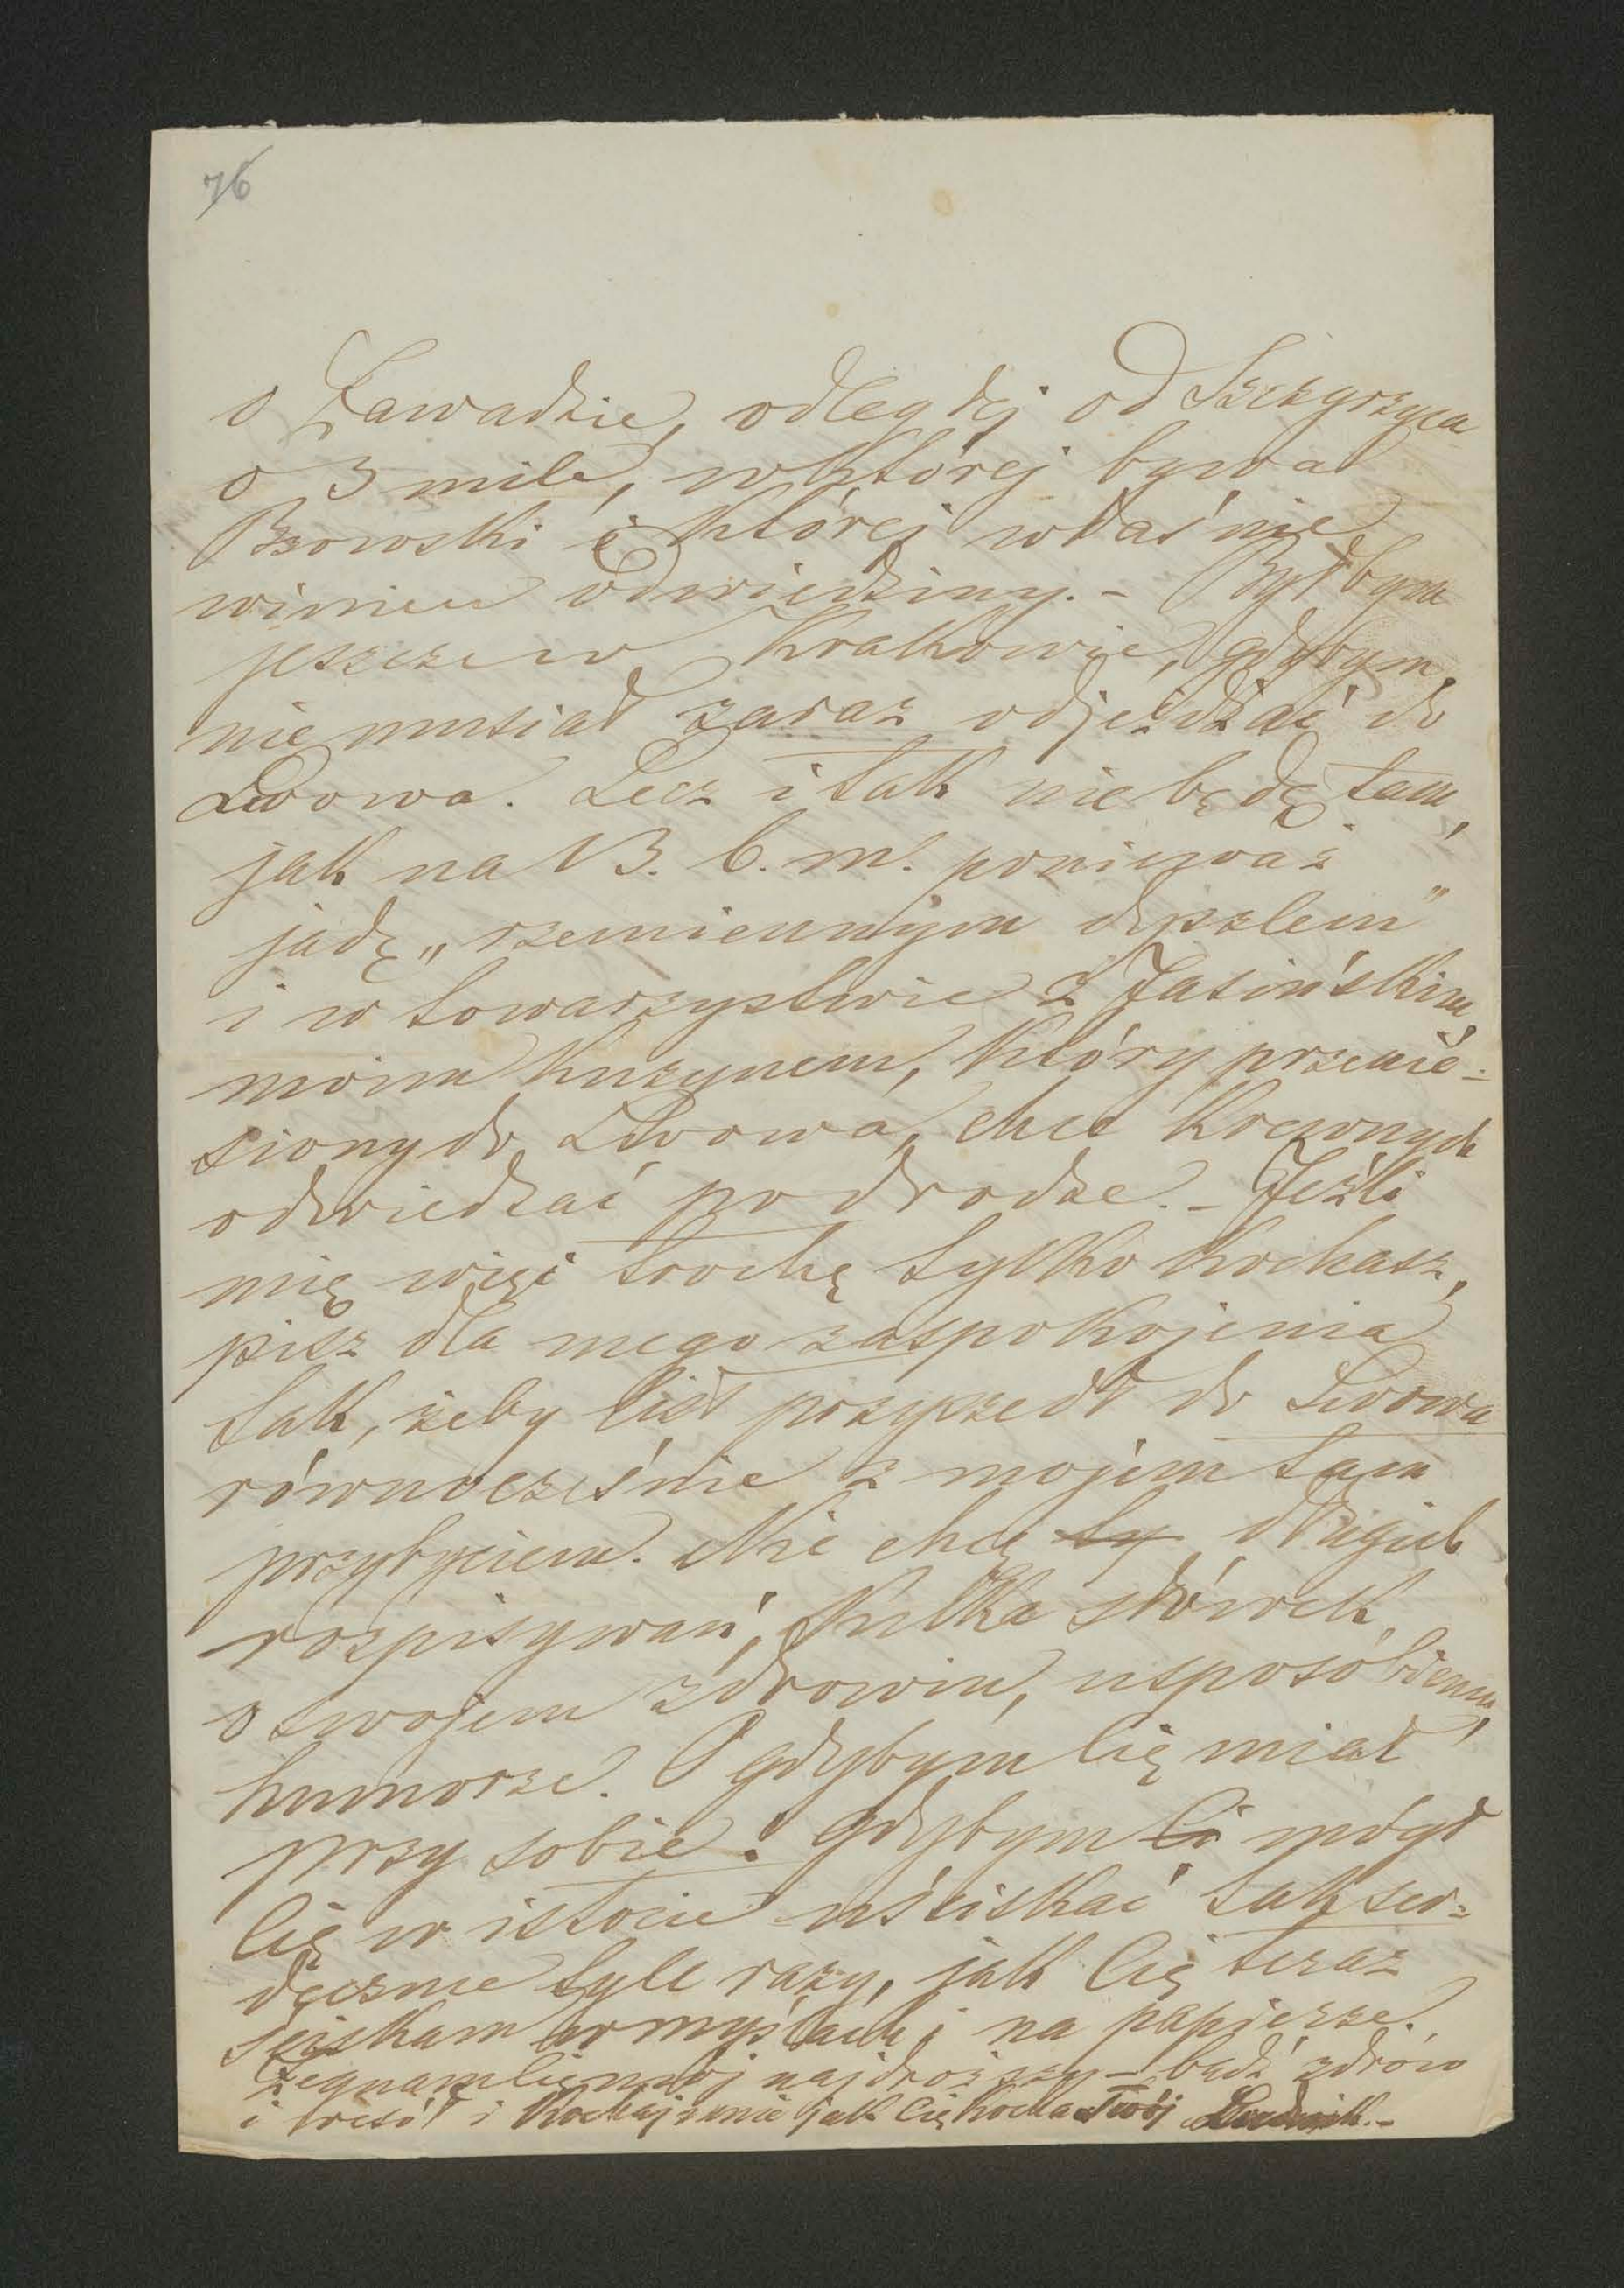 76
o Zawadzie, odległej od Szczyrzyca
o 3 mile, w której bywał
Bzowski i której właśnie
winien odwiedziny. – Byłbym
jeszcze w Krakowie, gdybym
nie musiał zaraz odjeżdżać do
Lwowa. Lecz i tak nie będę tam,
jak na 13. b. m. ponieważ
jadę „rzemiennym dyszlem"
i w towarzystwie z Jasińskim,
moim kuzynem, który przenie-
siony do Lwowa, chce krewnych
odwiedzać po drodze. – Jeźli
mię więc trochę tylko kochasz,
pisz dla mego zaspokojenia
tak, żeby list przyszedł do Lwowa
równocześnie z mojém tam
przybyciem. Nie chcę ty długich
rozpisywań, kilka słówek
o swojem zdrowiu, usposobieniu,
humorze. O gdybym Cię miał
przy sobie! gdybym Ci mógł
Cię w istocie uściskać tak ser-
decznie tyle razy, jak Cię teraz
ściskam w myślach i na papierze.
Żegnam Cię mój najdroższy – bądź zdrów
i wesół i kochaj mnie jak Cię kocha Twój Ludwik. –